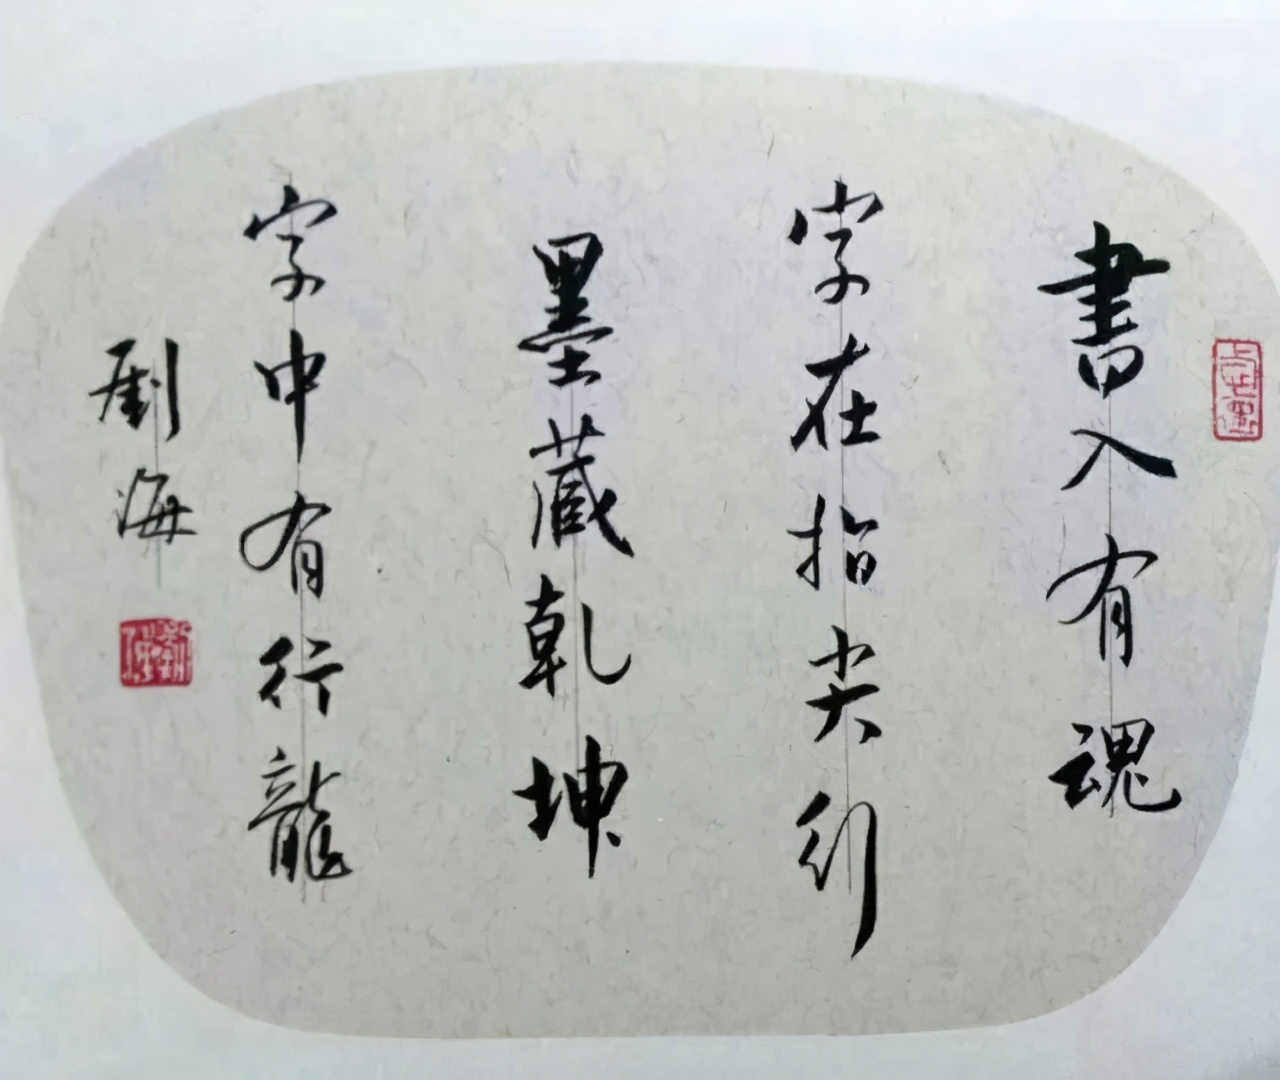 書入有魂
字在指尖行
墨蔵乾坤
字中有行龍
劉海